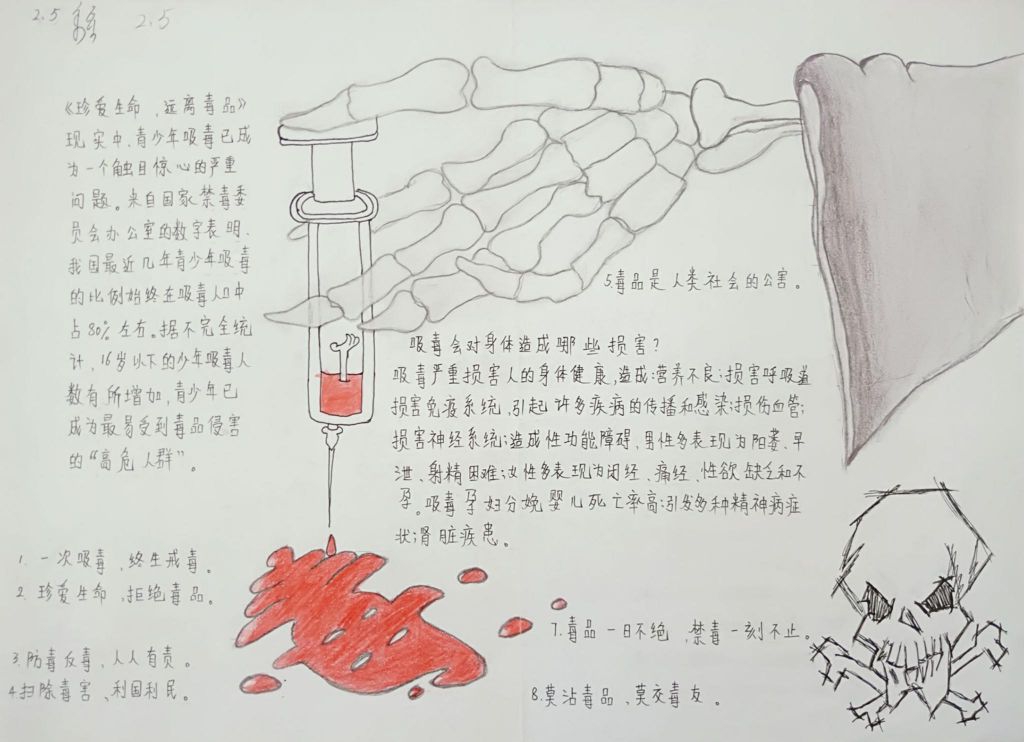 2.5
2.5
《珍爱生命，远离毒品》
现实中、青少年吸毒已成
为一个触目惊心的严重
问题。来自国家禁毒委
员会办公室的数字表明、
我国最近几年青少年吸毒
的比例始终在吸毒人口中
占80%左右。据不完全统
计，16岁以下的少年吸毒人
数有所增加，青少年已
成为最易受到毒品侵害
的“高危人群”。
5.毒品是人类社会的公害。
吸毒会对身体造成哪些损害？
吸毒严重损害人的身体健康，造成：营养不良；损害呼吸道
损害免疫系统，引起许多疾病的传播和感染；损伤血管；
损害神经系统；造成性功能障碍，男性多表现为阳萎、早
泄、射精困难；女性多表现为闭经、痛经、性欲缺乏和不
孕。吸毒孕妇分娩婴儿死亡率高；引发多种精神病症
状；肾脏疾患。
1. 一次吸毒，终生戒毒。
2. 珍爱生命，拒绝毒品。
3.防毒反毒、人人有责。
4.扫除毒害、利国利民。
7.毒品一日不绝，禁毒一刻不止。
8.莫沾毒品、莫交毒友。